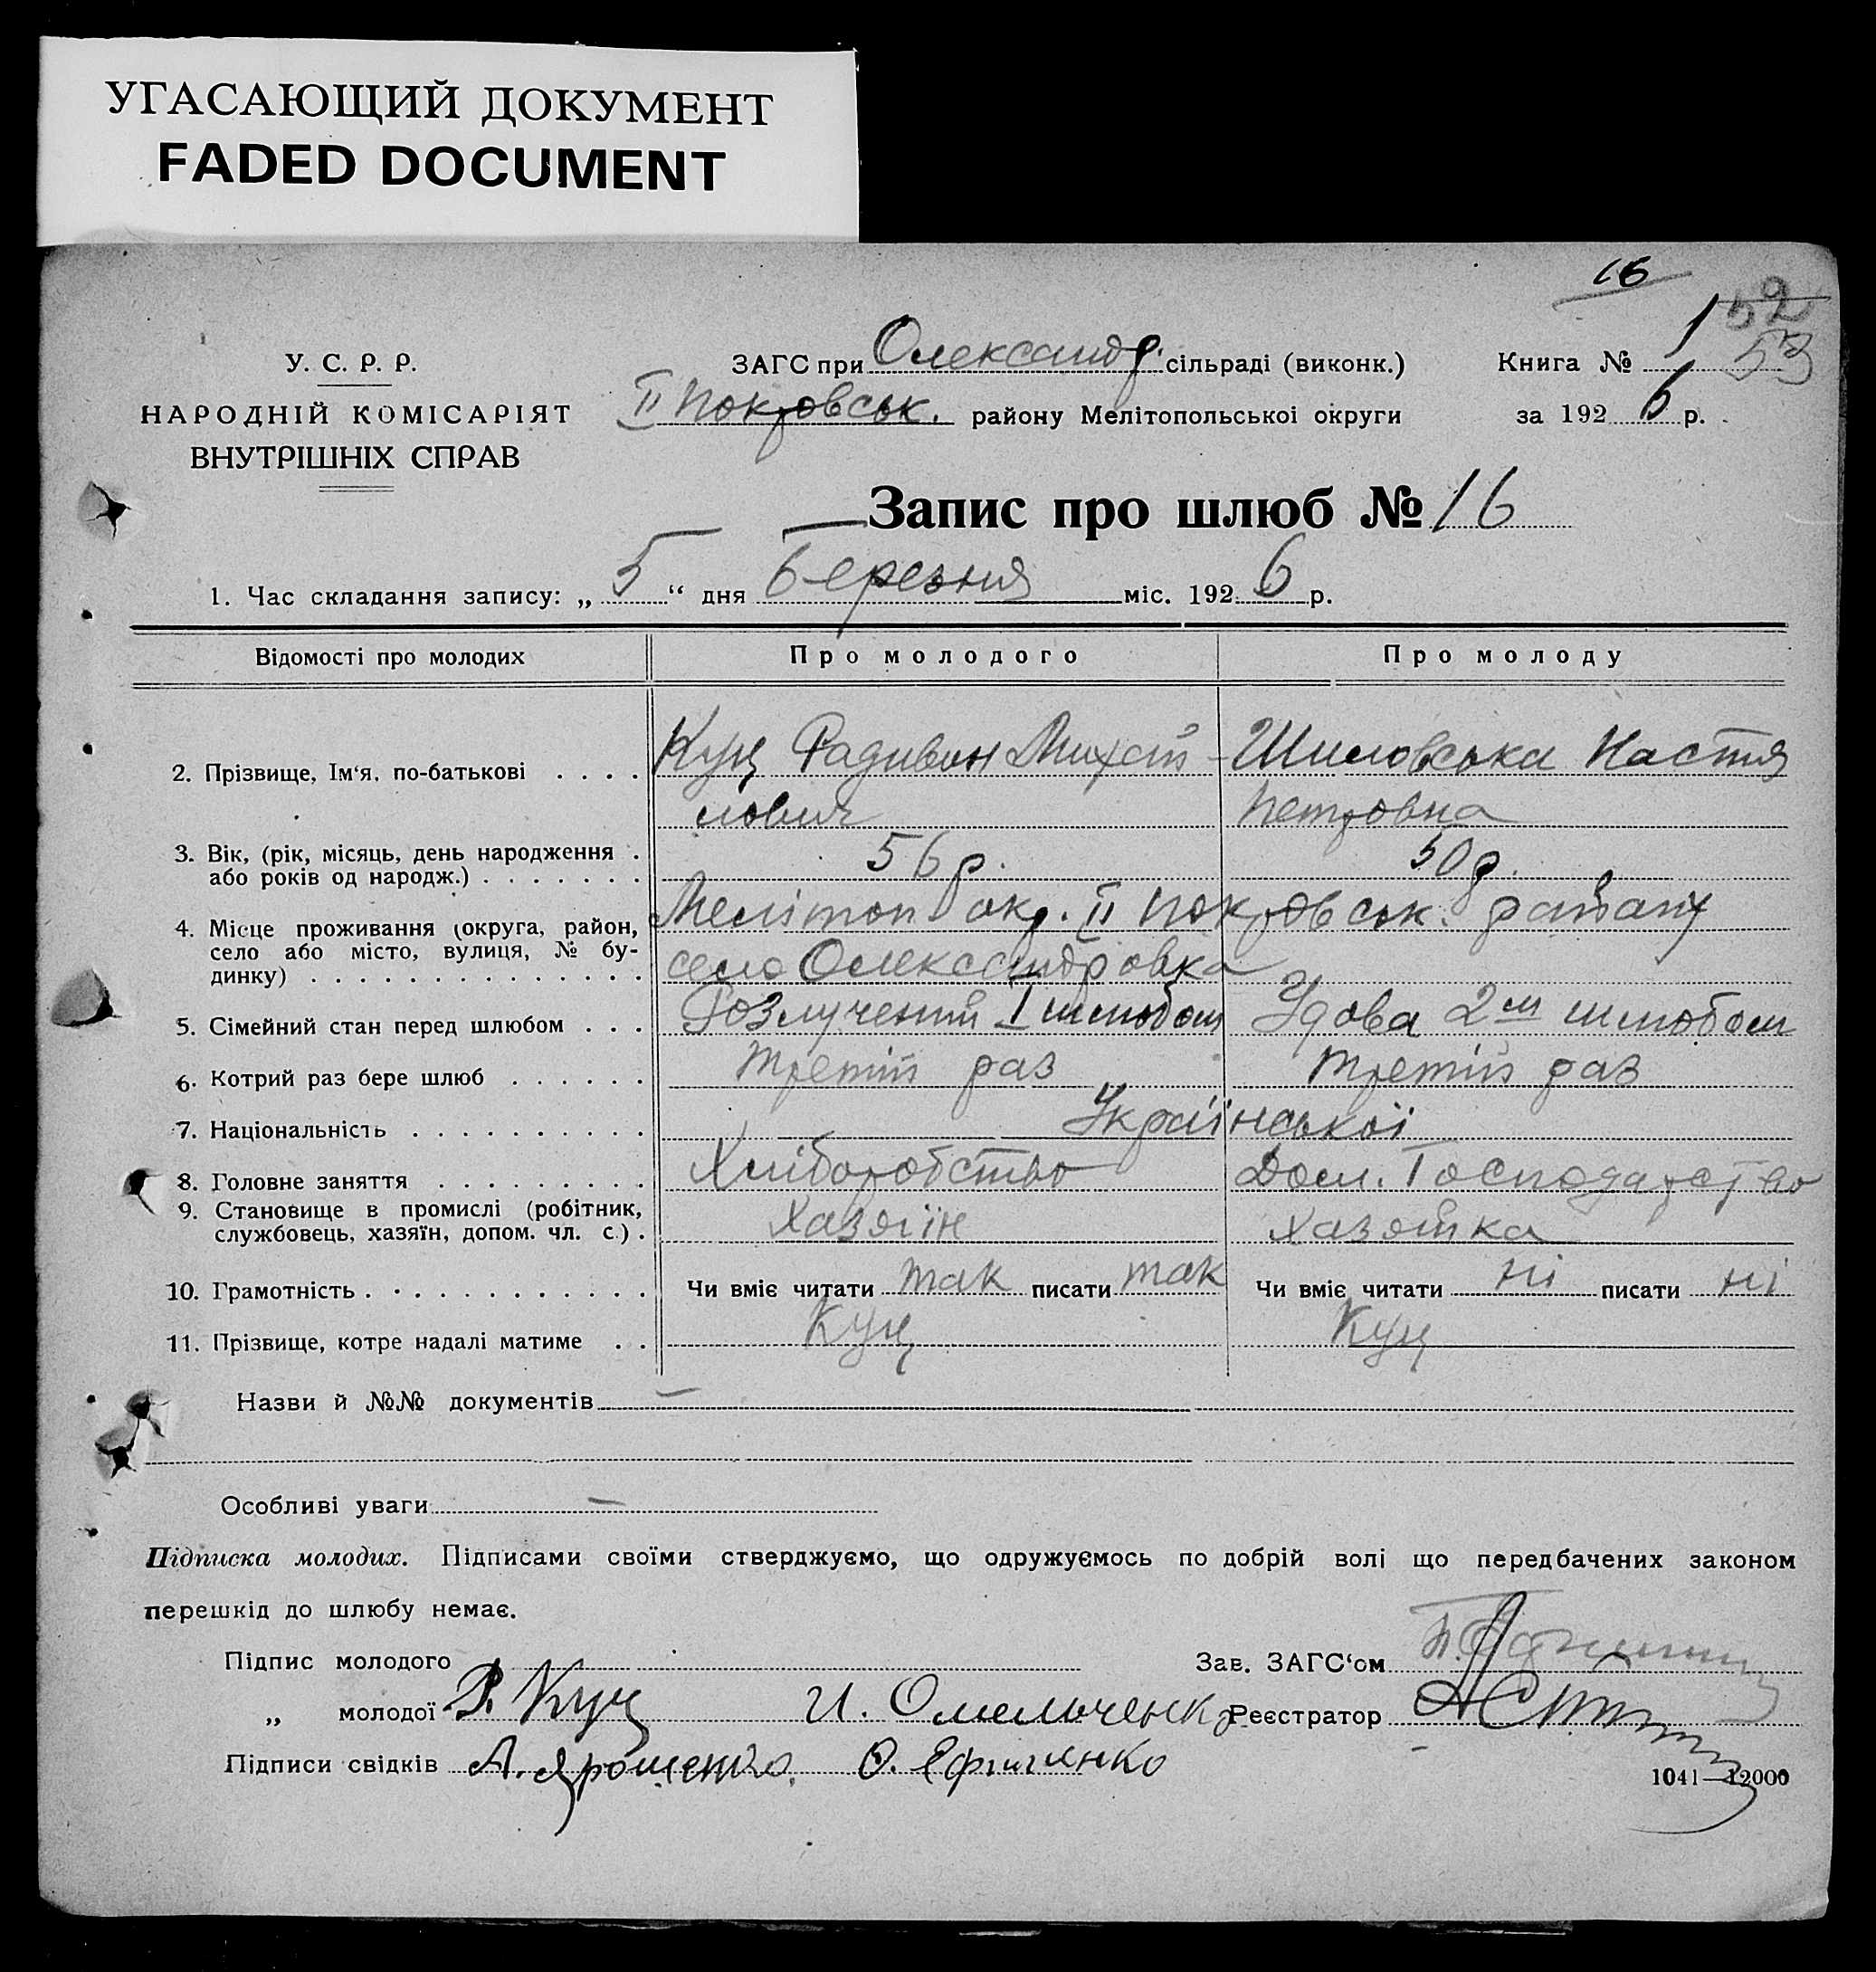 УГАСАЮЩИЙ ДОКУМЕНТ
FADED DOCUMENT
16
52
53
У. С. Р. Р.
НАРОДНІЙ КОМІСАРІЯТ
ВНУТРІШНІХ СПРАВ
ЗАГС при Олександр. сільраді (виконк.)
II Покровськ. району Мелітопольської округи
Книга № 1
за 1926 р.
Запис про шлюб № 16
1. Час складання запису: „5“ дня Березня міс. 1926 р.
Відомості про молодих Про молодого Про молоду
2. Прізвище, Ім‘я, по-батькові . . . . Куц Радивон Михай- Шиловська Настя
лович Петровна
3. Вік, (рік, місяць, день народження . 56 р. 50 р.
або років од народж.) . . . . . . .
4. Місце проживання (округа, район, Меліто­п окр. II Покровськ. району
село або місто, вулиця, № бу- село Олександровка
динку) . . . . . . . . . . . . . .
5. Сімейний стан перед шлюбом . . . Розлучений I шлюбом Удова 2м шлюбом
6. Котрий раз бере шлюб . . . . . . третій раз третій раз
7. Національність . . . . . . . . . . Української
8. Головне заняття . . . . . . . . . Хліборобство Дом. Господарство
9. Становище в промислі (робітник,
службовець, хазяїн, допом. чл. с.) . Хазяїн Хазяйка
10. Грамотність . . . . . . . . . . . . Чи вміє читати так писати так Чи вміє читати ні писати ні
11. Прізвище, котре надалі матиме . . Куц Куц
Назви й №№ документів —
Особливі уваги —
Підписка молодих. Підписами своїми стверджуємо, що одружуємось по добрій волі що передбачених законом
перешкід до шлюбу немає.
Підпис молодого Зав. ЗАГС‘ом
„ молодої Р. Куц И. Омельченко Реєстратор
Підписи свідків А. Ярошенко. О. Ефименко
1041—12000